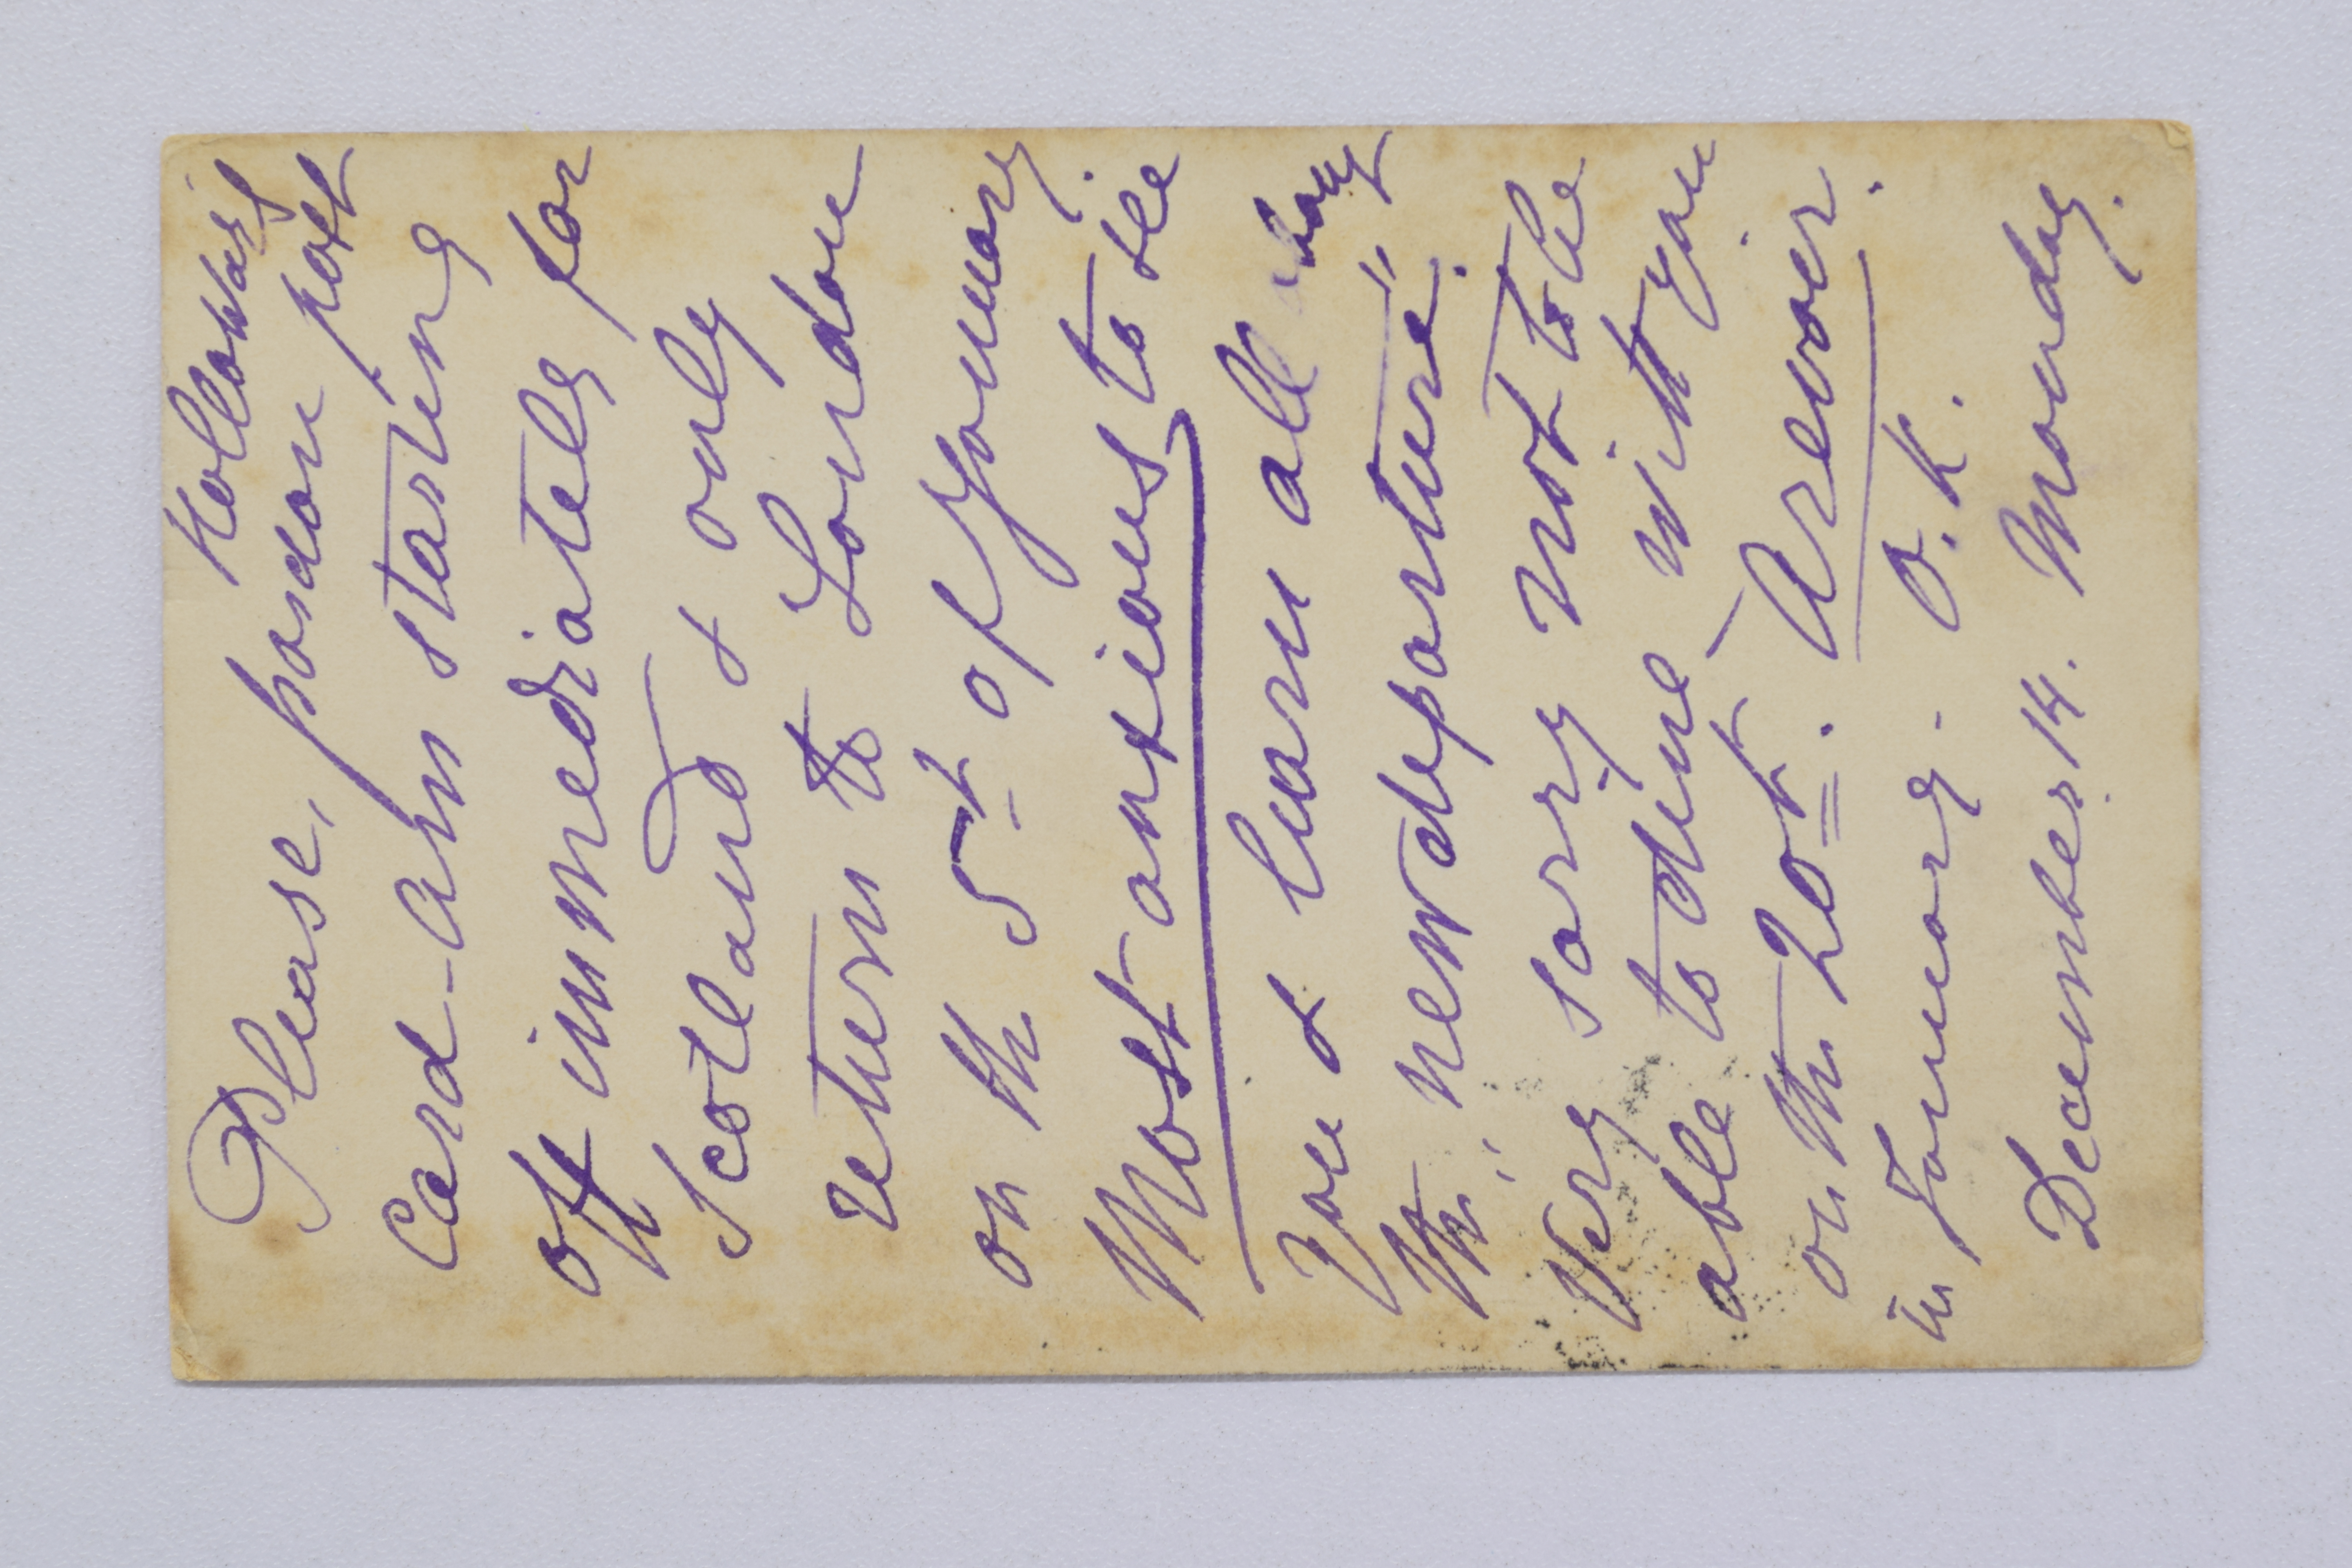 Hollows
Please, pardon post
Card - Am starting
off immediately for
Scotland & only
return to London
on the 5th of January.
Most anxious to see
you & learn all about
the "new departure".
Very sorry not to be
able to dine with you
on the 20th. Arevoir.
in January - O. K.
December 14. Monday.